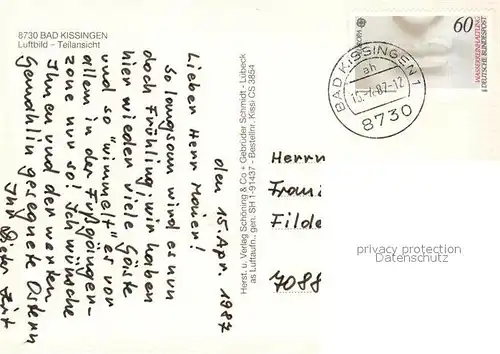 8730 BAD KISSINGEN
Luftbild – Teilansicht
den 15. Apr. 1987
Lieber Herr Maier!
so langsam wird es nun
doch Frühling, wir haben
hier wieder viele Gäste
und so "wimmelt" es vor
allem in der Fußgänger-
zone nur so! Ich wünsche
Ihnen und der werten
Gemahlin gesegnete Ostern
Ihr
Herst. u. Verlag Schöning & Co + Gebrüder Schmidt · Lübeck
as Luftaufn., gen. SH 1-91437 - Bestellnr. Kissi CS 3854
EUROPA
60
WASSERREINHALTUNG
DEUTSCHE BUNDESPOST
BAD KISSINGEN 1
ah
15.-4.87-12
8730
Herrn
Franz
Filde
7088
privacy protection
Datenschutz